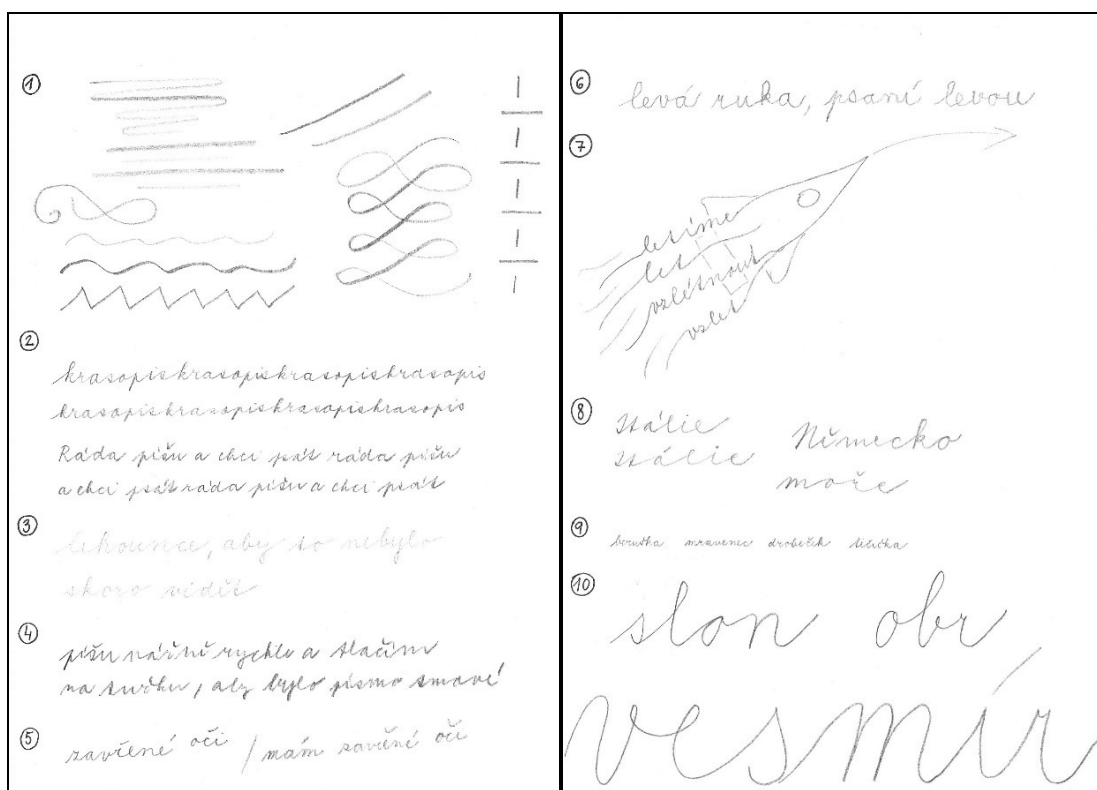 1
2
krasopiskrasopiskrasopiskrasopis
krasopiskrasopiskrasopiskrasopis
Ráda píšu a chci psát ráda píšu
a chci psát ráda píšu a chci psát
3
lehounce, aby to nebylo
skoro vidět
4
píšu vážně rychle a tlačím
na tužku, aby bylo písmo tmavé
5
zavřené oči / mám zavřené oči
6
levá ruka, psaní levou
7
letíme
let
vzlétnout
vzlet
8
Itálie
Itálie Německo
moře
9
beruška mravenec drobeček tělíčka
10
slon obr
vesmír